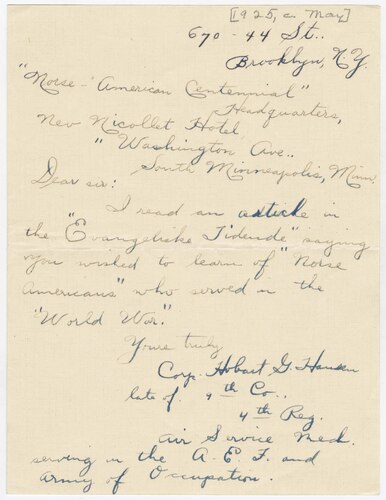 [1925, c. May]
670 - 44 St..
Brooklyn, N.Y.
"Norse - American Centennial"
Headquarters,
New Nicollet Hotel,
" Washington Ave..
South Minneapolis, Minn.
Dear sir:
I read an article in
the "Evangeliske Tidende" saying
you wished to learn of "Norse
Americans" who served in the
"World War."
Yours truly
Corp. Hobart G. Hansen
late of 4th Co..,
4th Reg.
Air Service Mech.
serving in the A. E. F. and
Army of Occupation.